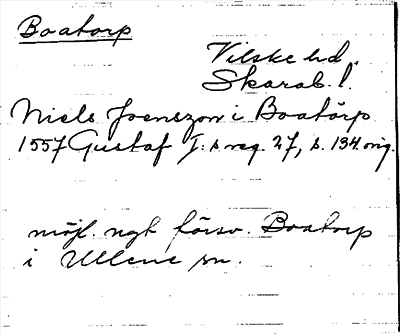 Boatorp
Vilske hd.
Skarab. l.
Niels Joenszon i Boatörp
1557 Gustaf I:s reg. 27, s. 134 orig.
möjl. ngt försv. Boatorp
i Ullene sn.